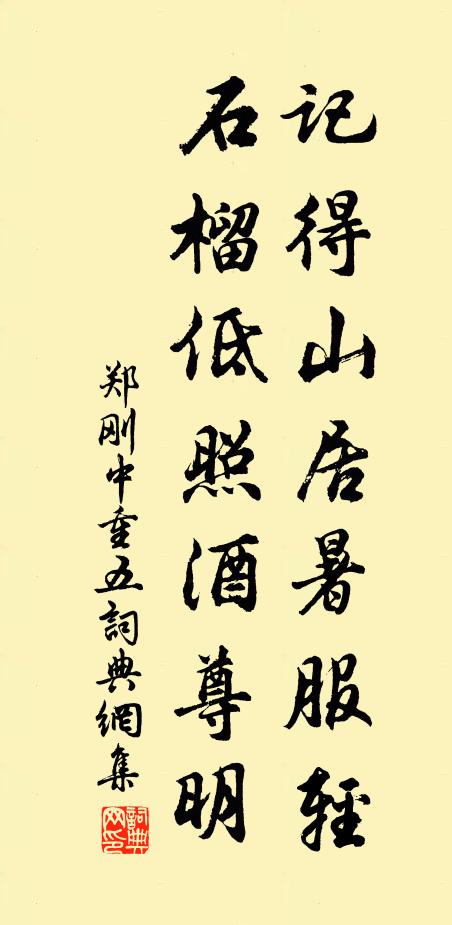 记得山居暑服轻
石榴低照酒尊明
郑刚中重五詞典網集
詞典网印